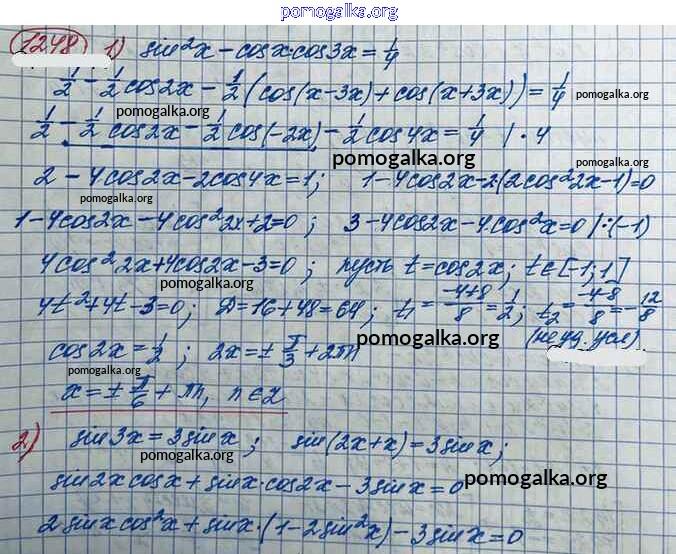 pomogalka.org
1248 1) sin²x - cosx·cos3x = 1/4
1/2 - 1/2 cos2x - 1/2 (cos(x-3x) + cos(x+3x)) = 1/4 pomogalka.org
pomogalka.org
1/2 - 1/2 cos2x - 1/2 cos(-2x) - 1/2 cos4x = 1/4 | · 4
pomogalka.org
2 - 4cos2x - 2cos4x = 1; 1 - 4cos2x - 2(2cos²2x - 1) = 0
pomogalka.org
1 - 4cos2x - 4cos²2x + 2 = 0; 3 - 4cos2x - 4·cos²x = 0 | :(-1)
4cos²2x + 4cos2x - 3 = 0; пусть t = cos2x; t ∈ [-1; 1]
pomogalka.org
4t² + 4t - 3 = 0; D = 16 + 48 = 64; t₁ = (-4+8)/8 = 1/2; t₂ = (-4-8)/8 = -12/8
(не уд. усл)
cos2x = 1/2; 2x = ± π/3 + 2πn pomogalka.org
pomogalka.org
x = ± π/6 + πn, n ∈ Z
2) sin3x = 3sinx; sin(2x+x) = 3sinx;
pomogalka.org
sin2x cosx + sinx·cos2x - 3sinx = 0 pomogalka.org
2sinx cos²x + sinx·(1 - 2sin²x) - 3sinx = 0